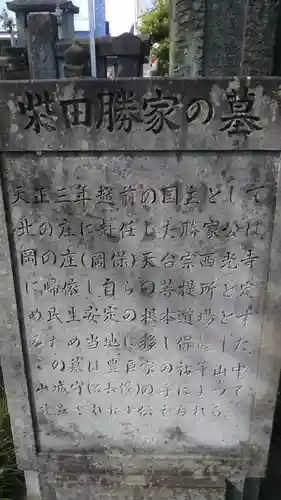 柴田勝家の墓
天正三年越前の国主として
北の庄に赴任した勝家公は
岡の庄(岡保)天台宗西光寺
に帰依し自らの菩提所と定
めた民生安定の根本道場とす
るため当地に移し保護した
この墓は豊臣家の祐筆山中
山城守(長俊)の手によって
建立されたと伝えられる